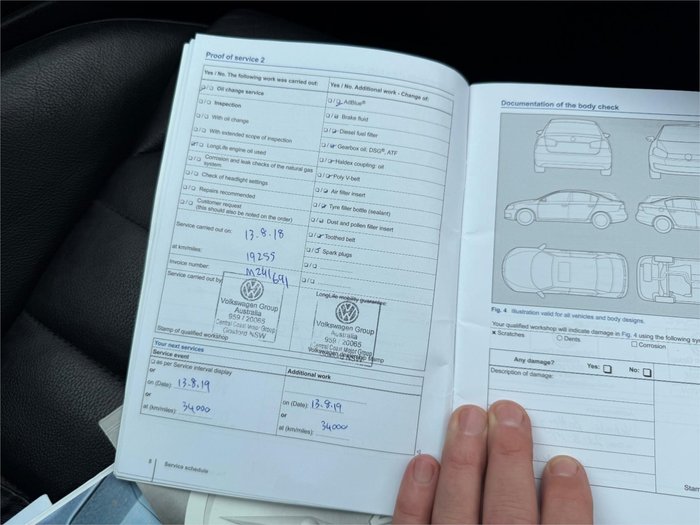 Proof of service 2
Yes / No. The following work was carried out:
Oil change service
Inspection
With oil change
With extended scope of inspection
LongLife engine oil used
Corrosion and leak checks of the natural gas
system
Check of headlight settings
Repairs recommended
Customer request
(this should also be noted on the order)
Service carried out on: 13.8.18
at km/miles: 19255
Invoice number: M241691
Service carried out by
Volkswagen Group
Australia
959 / 20065
Central Coast Motor Group
Gosford NSW
Stamp of qualified workshop
Yes / No. Additional work - Change of:
AdBlue®
Brake fluid
Diesel fuel filter
Gearbox oil: DSG®, ATF
Haldex coupling: oil
Poly V-belt
Air filter insert
Tyre filler bottle (sealant)
Dust and pollen filter insert
Toothed belt
Spark plugs
LongLife mobility guarantee:
Volkswagen Group
Australia
959 / 20065
Central Coast Motor Group
NSW
Your next services
Service event
as per Service interval display
or
on (Date): 13.8.19
or
at (km/miles): 34000
Additional work
on (Date): 13.8.19
or
at (km/miles): 34000
8 Service schedule
Documentation of the body check
Fig. 4 Illustration valid for all vehicles and body designs.
Your qualified workshop will indicate damage in Fig. 4 using the following sy
x Scratches
Dents
Corrosion
Any damage? Yes: No:
Description of damage:
Stam